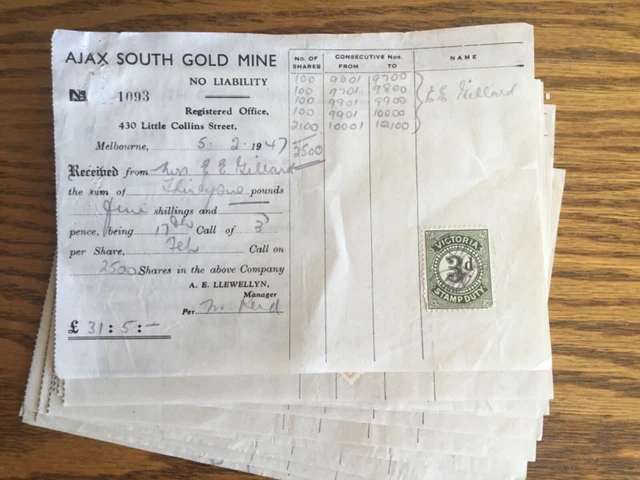 AJAX SOUTH GOLD MINE
NO LIABILITY
No 1093
Registered Office,
430 Little Collins Street,
Melbourne, 5.2.1947
Received from Mrs. E E Gillard
the sum of Thirtyone pounds
five shillings and
pence, being 17th Call of 3
per Share, Feb Call on
2500 Shares in the above Company
A. E. LLEWELLYN,
Manager
Per
£ 31:5:-
No. OF SHARES CONSECUTIVE Nos. FROM TO NAME
100 9601 9700
100 9701 9800
100 9801 9900
100 9901 10000
2100 10001 12100
2500
E E Gillard
VICTORIA
3d
STAMP DUTY